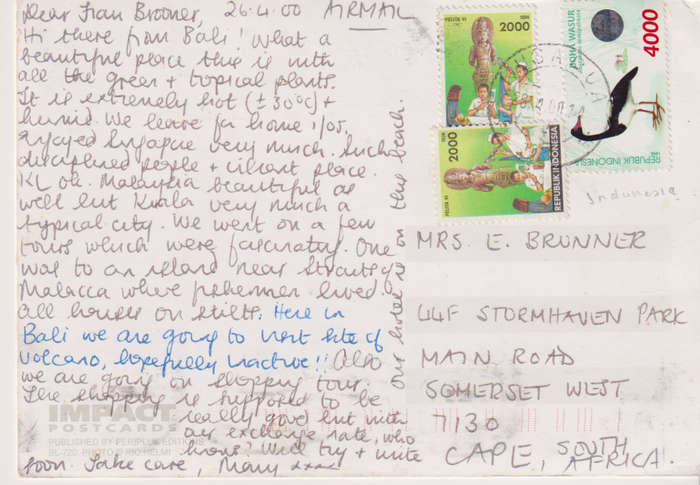 Dear Frau Brooner, 26.4.00 AIRMAIL
Hi there from Bali! What a
beautiful place this is with
all the green + tropical plants.
It is extremely hot (± 30°C) +
humid. We leave for home 1/05.
Enjoyed Singapore very much. Such
disciplined people + vibrant place.
KL ok. Malaysia beautiful as
well but Kuala very much a
typical city. We went on a few
tours which were fascinating. One
was to an island near Straits of
Malacca where fishermen lived.
All houses on stilts. Here in
Bali we are going to visit site of
volcano, hopefully inactive!! Also
we are going on shopping tour.
The shopping is supposed to be
really good but with
our exchange rate, who
knows? Will try + write
soon. Take care, Many xxxx
Our hotel is on this beach.
IMPACT
POSTCARDS
PUBLISHED BY PERIPLUS EDITIONS
BL-720 PHOTO © RIO HELMI
2000
REPUBLIK INDONESIA
2000
4000
REPUBLIK INDONESIA
Indonesia
MRS. E. BRUNNER
44F STORMHAVEN PARK
MAIN ROAD
SOMERSET WEST
7130
CAPE, SOUTH
AFRICA.